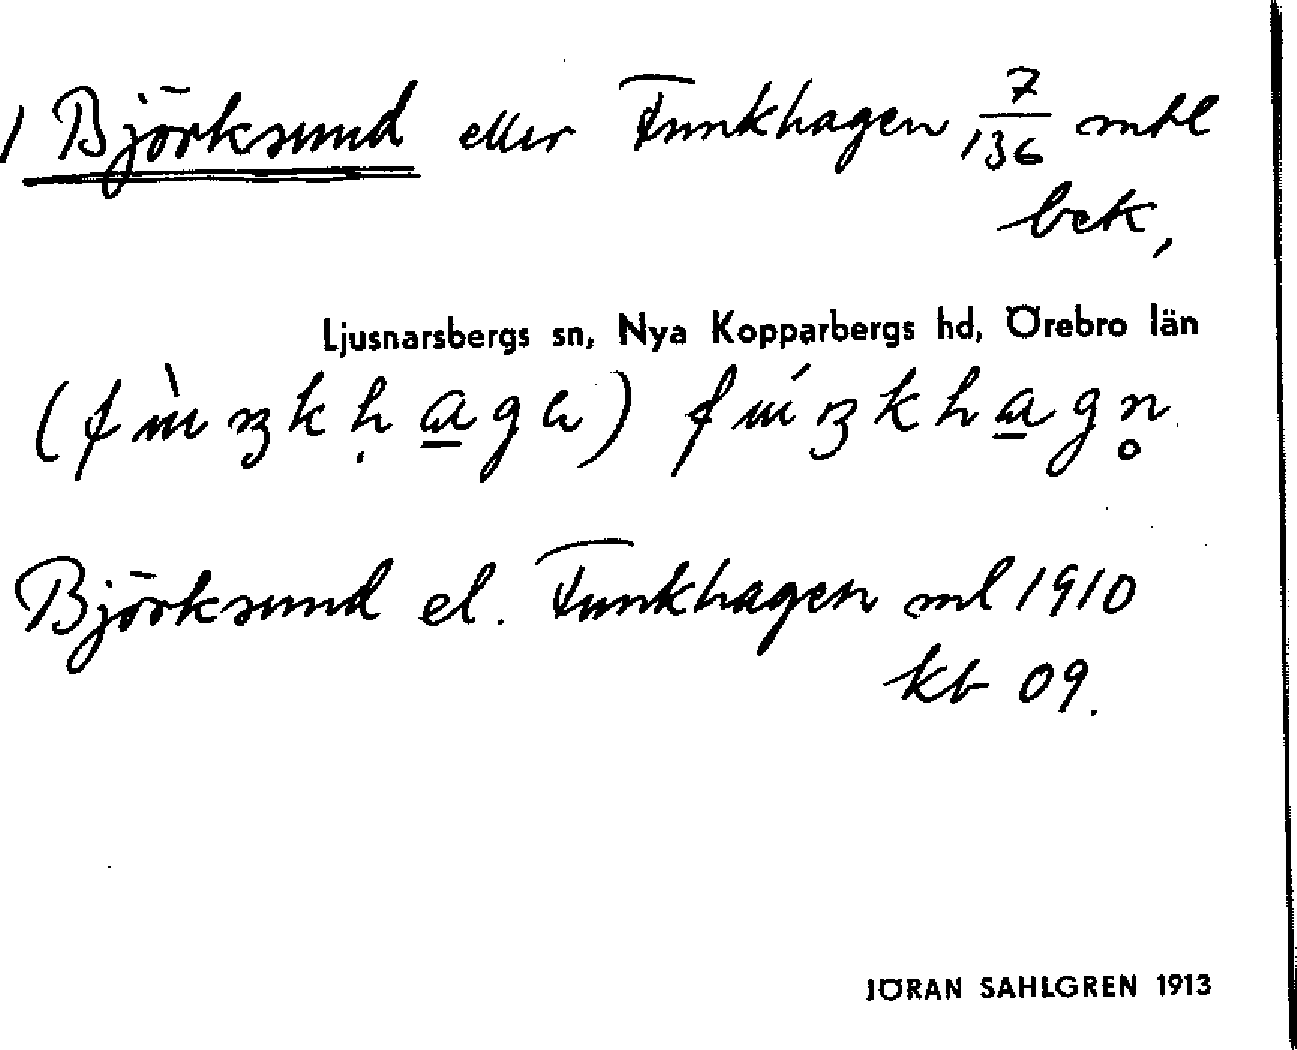 1 Björksund eller Funkhagen 7/136 mtl
bek,
Ljusnarsbergs sn, Nya Kopparbergs hd, Örebro län
Björksund el. Funkhagen ml 1910
kb 09.
JÖRAN SAHLGREN 1913